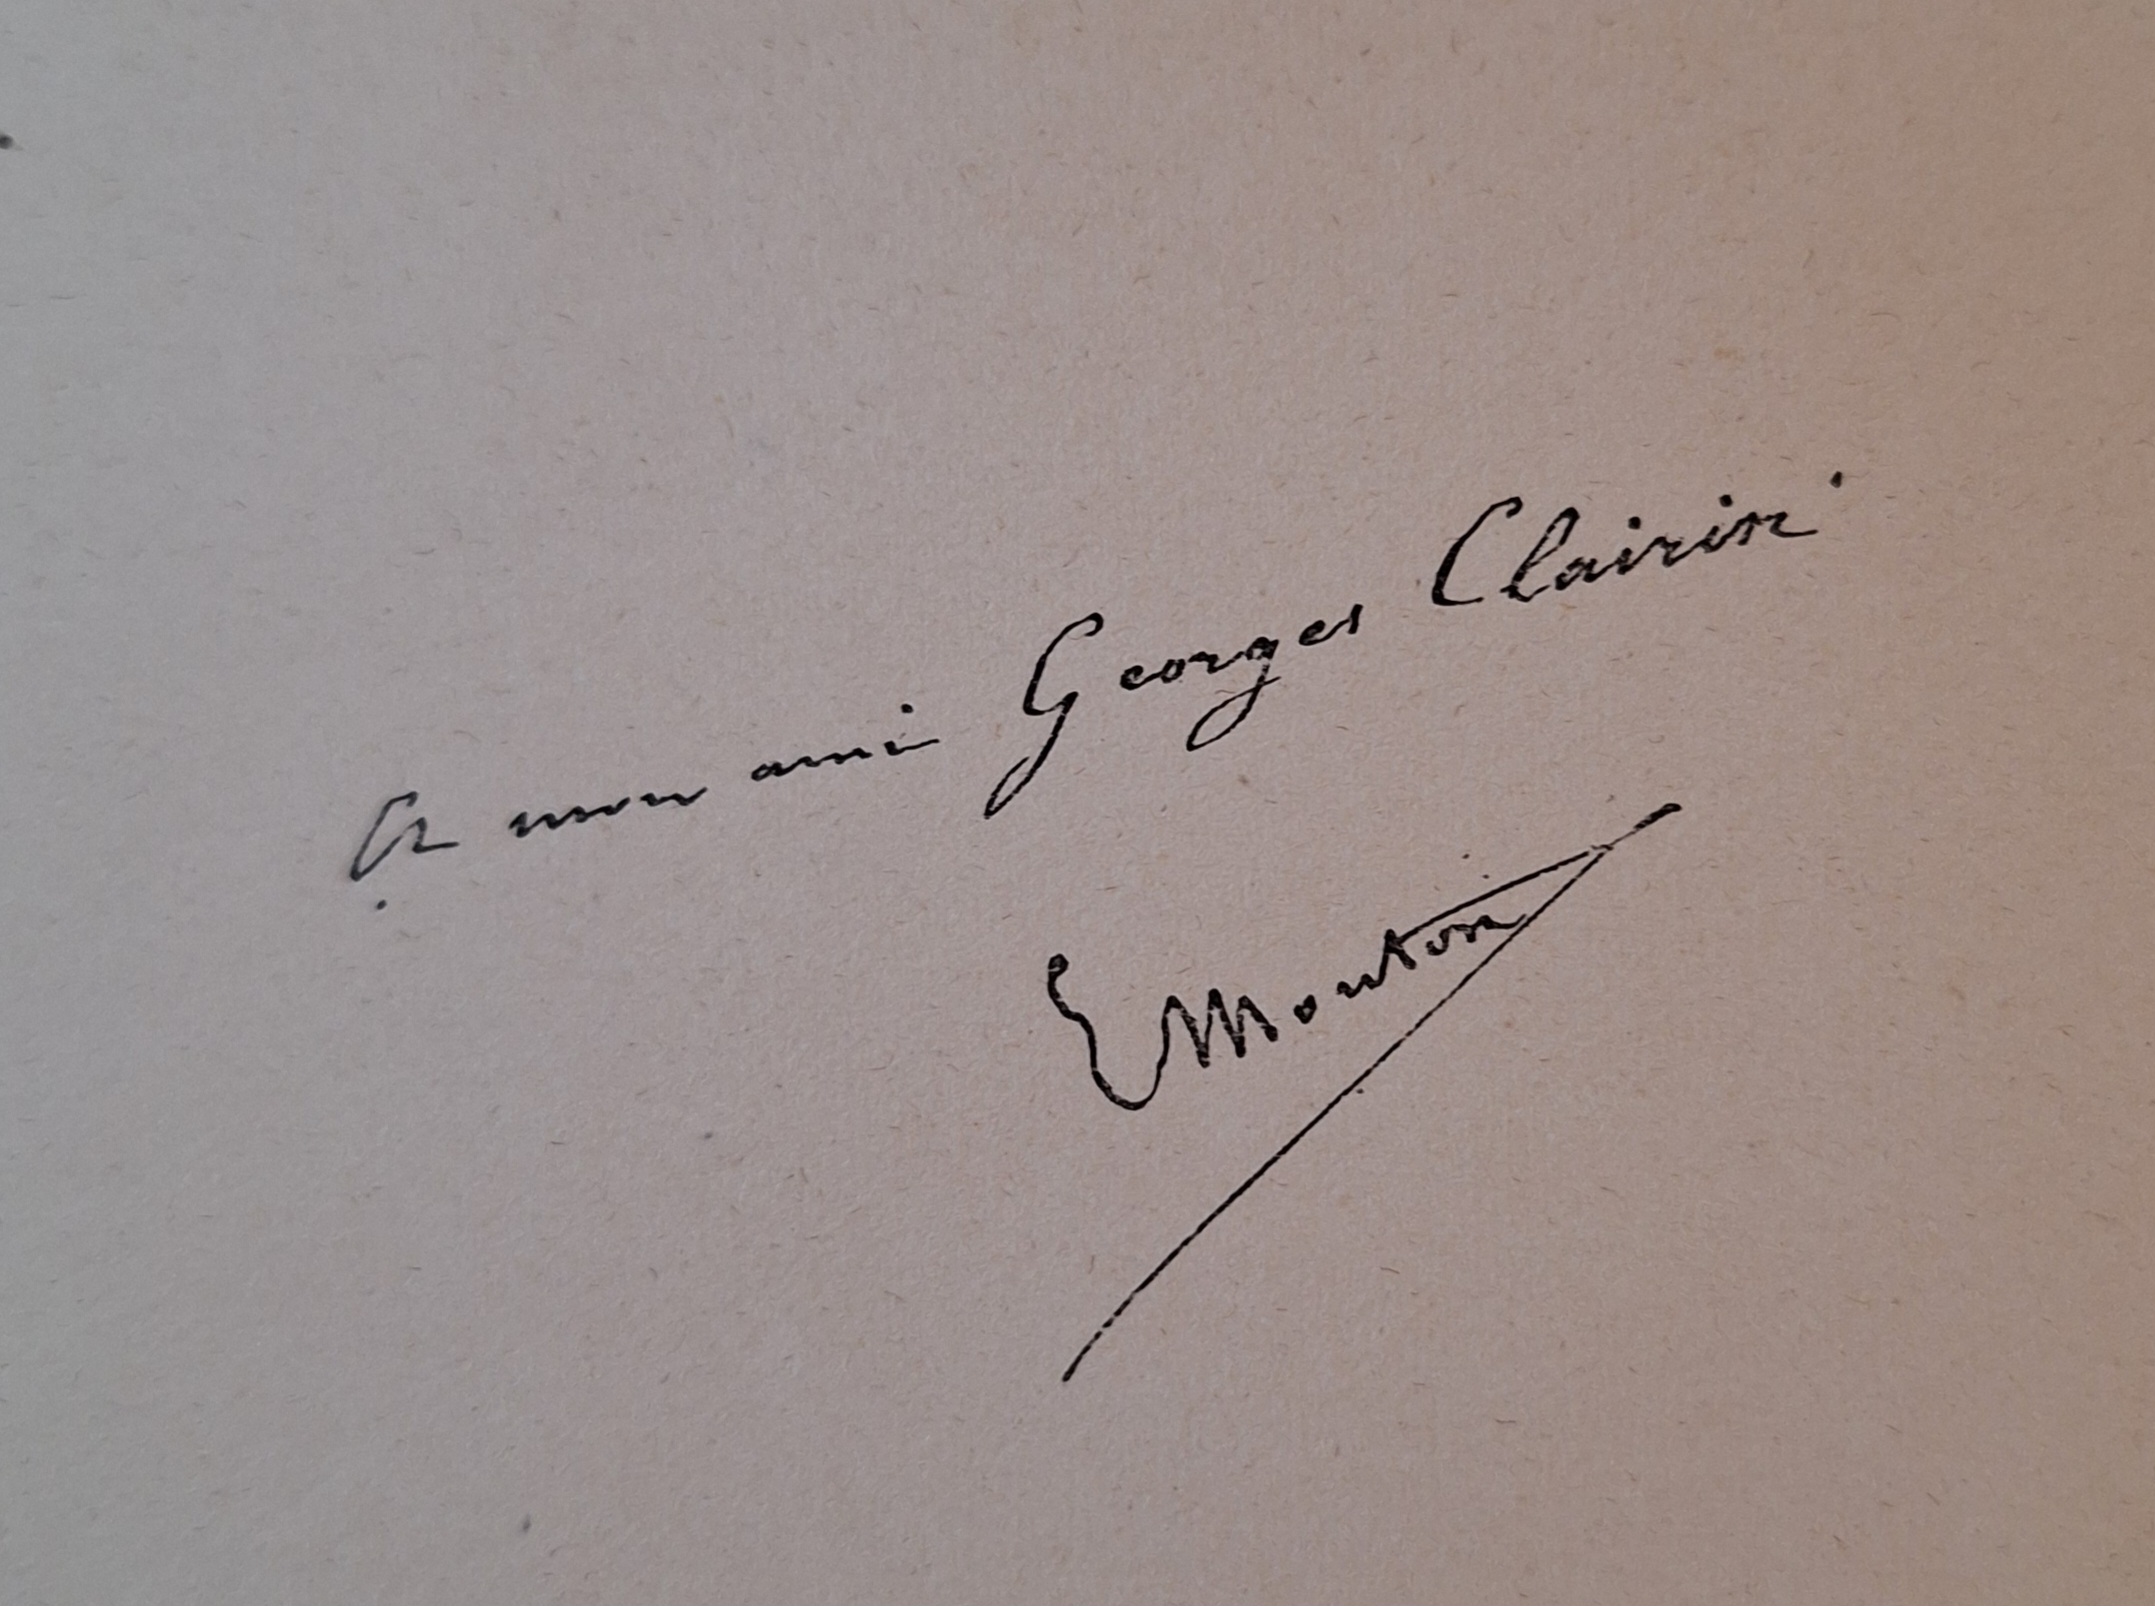 A mon ami Georges Clairin
E Mouton